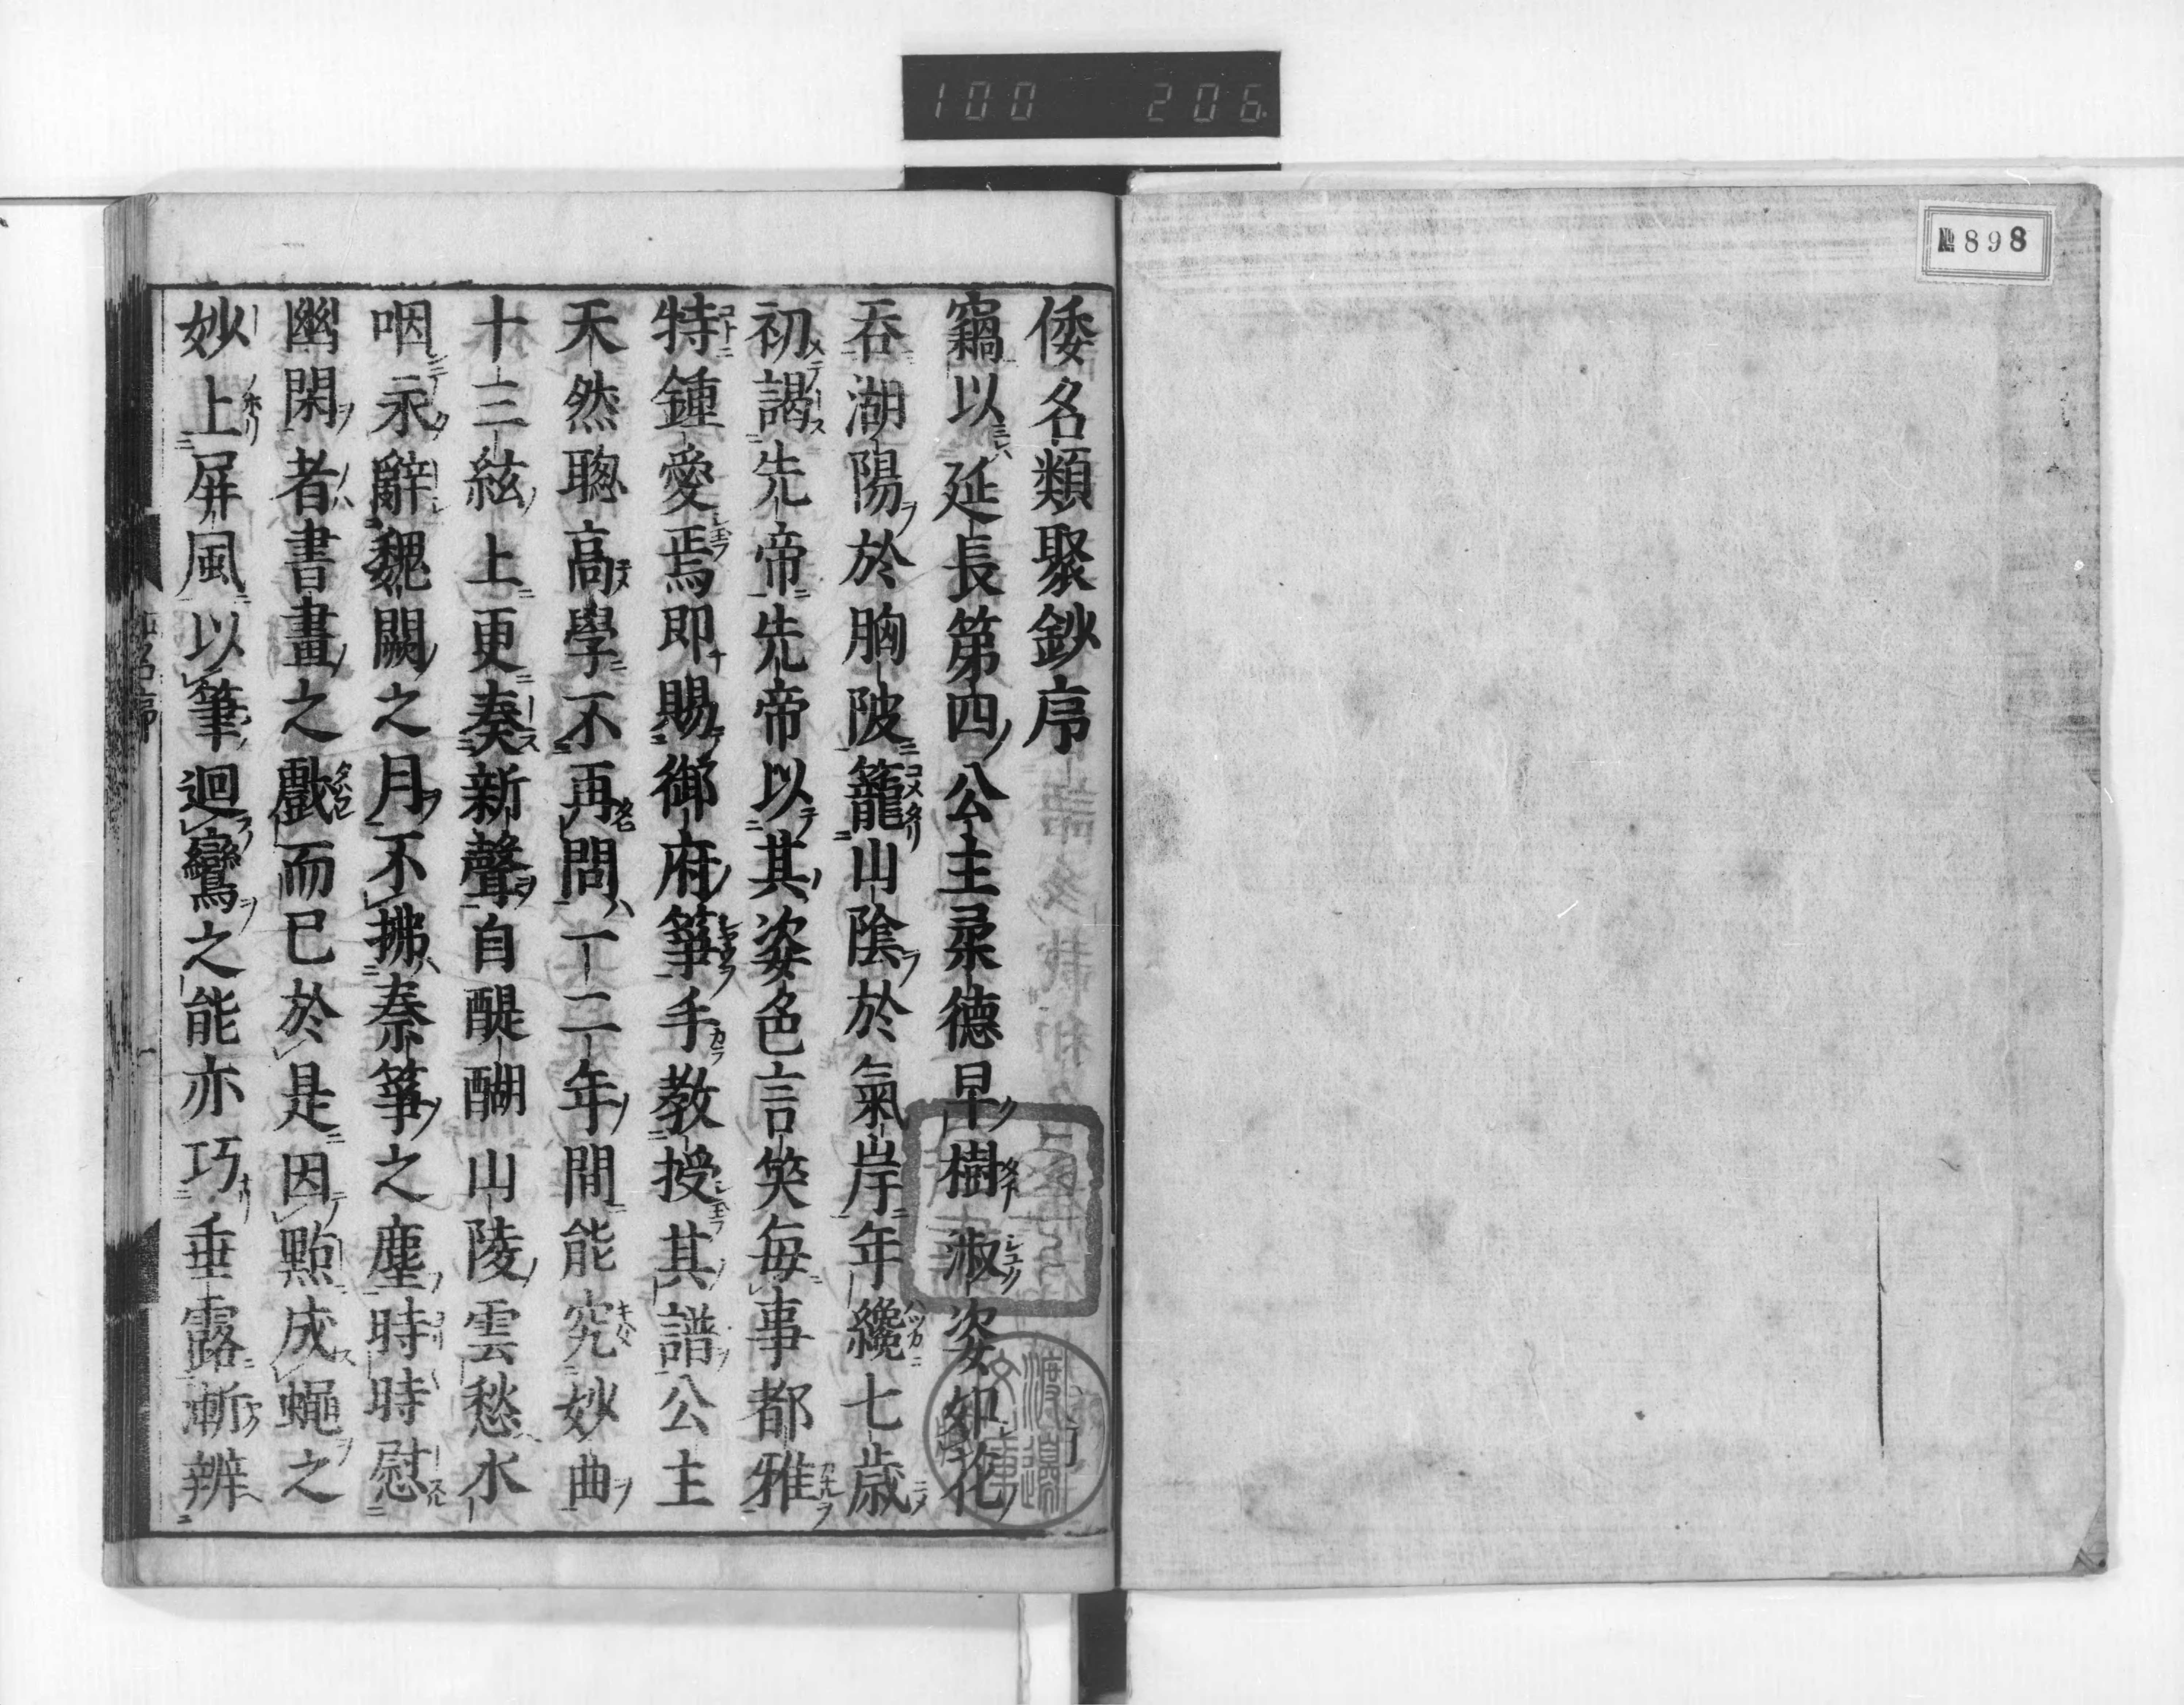 100 206
№898
倭名類聚鈔序
竊以延長第四公主柔德早樹淑姿如花
吞湖陽於胸陂籠山陰於氣岸年纔七歲
初謁先帝先帝以其姿色言笑每事都雅
特鍾愛焉即賜御府箏手教授其譜公主
天然聰高學不再問一二年間能究妙曲
十三絃上更奏新聲自醍醐山陵雲愁水
咽永辭魏闕之月不拂秦箏之塵時時慰
幽閑者書畫之戲而已於是因點成蠅之
妙上屏風以筆迴鸞之能亦巧垂露漸辨